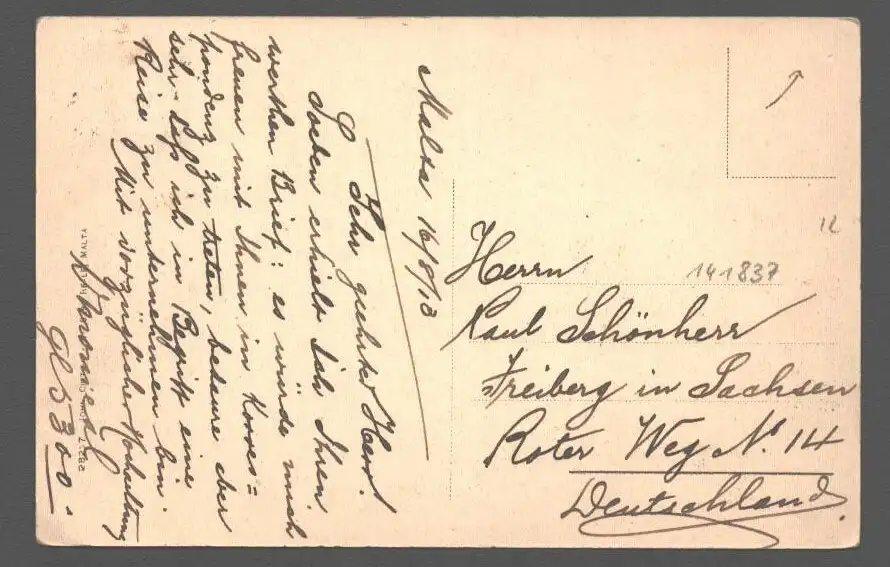 Malta 16/8/13
Sehr geehrter Herr!
Soeben erhielt ich Ihren
werthen Brief: es würde mich
freuen mit Ihnen in Korres=
pondenz zu treten, bedaure aber
sehr daß ich in Begriff eine
Reise zu unternehmen bin.
Mit vorzüglicher Hochachtung
Gl 5300.-
MALTA
Herrn
141837
Paul Schönherr
Freiberg in Sachsen
Roter Weg No. 14
Deutschland.
12